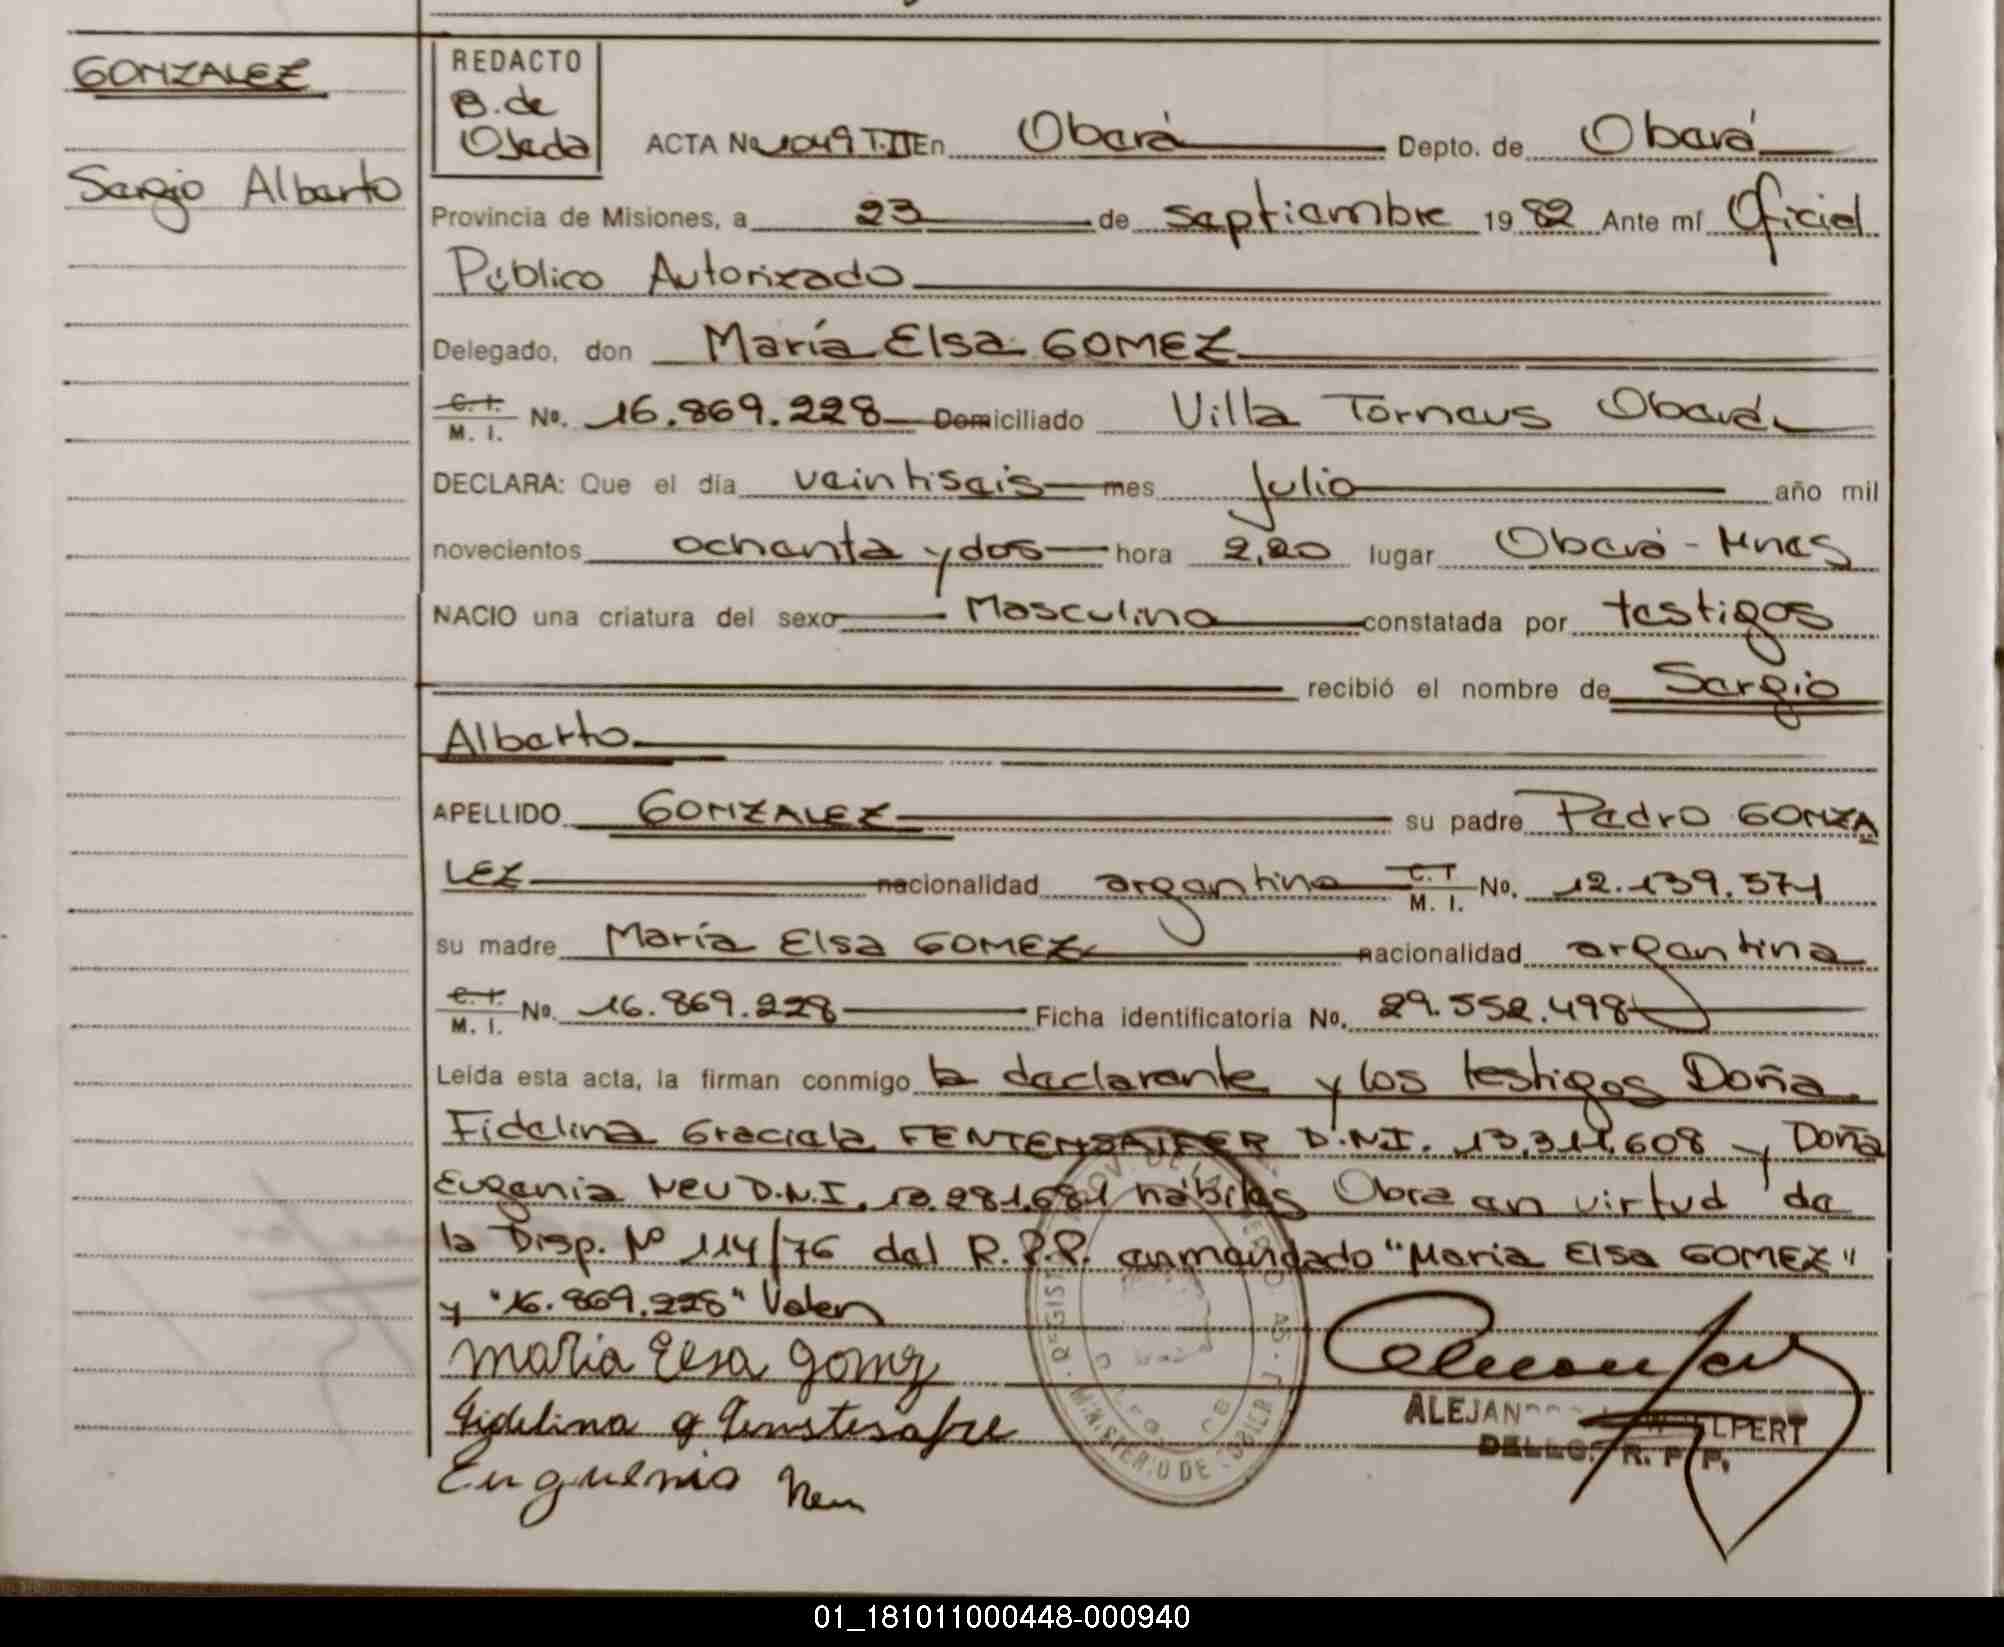 GONZALEZ
Sergio Alberto
REDACTO
B. de
Ojeda
ACTA No 1049 T.III En Oberá Depto. de Oberá
Provincia de Misiones, a 23 de septiembre 1982 Ante mí Oficial
Público Autorizado
Delegado, don María Elsa GOMEZ
C. I. M. I. No. 16.869.228 Domiciliado Villa Torneus Oberá
DECLARA: Que el día veintiseis mes Julio año mil
novecientos ochenta y dos hora 2,20 lugar Oberá - Mnes
NACIO una criatura del sexo Masculino constatada por testigos
recibió el nombre de Sergio
Alberto
APELLIDO GONZALEZ su padre Pedro GONZA
LEZ nacionalidad argentina C. I. M. I. No. 12.139.571
su madre María Elsa GOMEZ nacionalidad argentina
C. I. M. I. No. 16.869.228 Ficha identificatoria No. 29.552.498
Leída esta acta, la firman conmigo la declarante y los testigos Doña
Fidelina Graciela D.N.I. 13.311.608 y Doña
Eugenia NEU D.N.I. hábiles Obra en virtud de
la Disp. Nº 114/76 del R.P.P. enmendado "María Elsa GOMEZ"
y "16.869.228" Valen
Maria Elsa Gomez
Fidelina G
Euguenia Neu
MINISTERIO DE
ALEJAN LPERT
R. P. P.
01_181011000448-000940